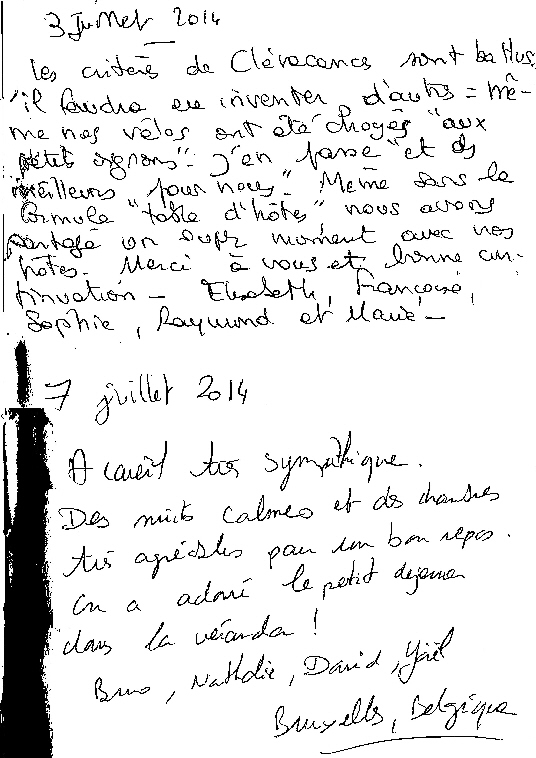 3 Juillet 2014
Les critères de Clévacances sont battus,
il faudra en inventer d'autres = mê-
me nos vélos ont été choyés "aux
petits oignons". J'en passe "et des
meilleurs pour nous". Même sans la
formule "table d'hôtes" nous avons
partagé un super moment avec nos
hôtes. Merci à vous et bonne con-
tinuation - Elisabeth, Françoise,
Sophie, Raymond et Marie -
7 juillet 2014
Accueil très sympathique.
Des nuits calmes et des chambres
très agréables pour un bon repos.
On a adoré le petit dejeuner
dans la véranda !
Bruno, Nathalie, David, Yaël
Bruxelles, Belgique